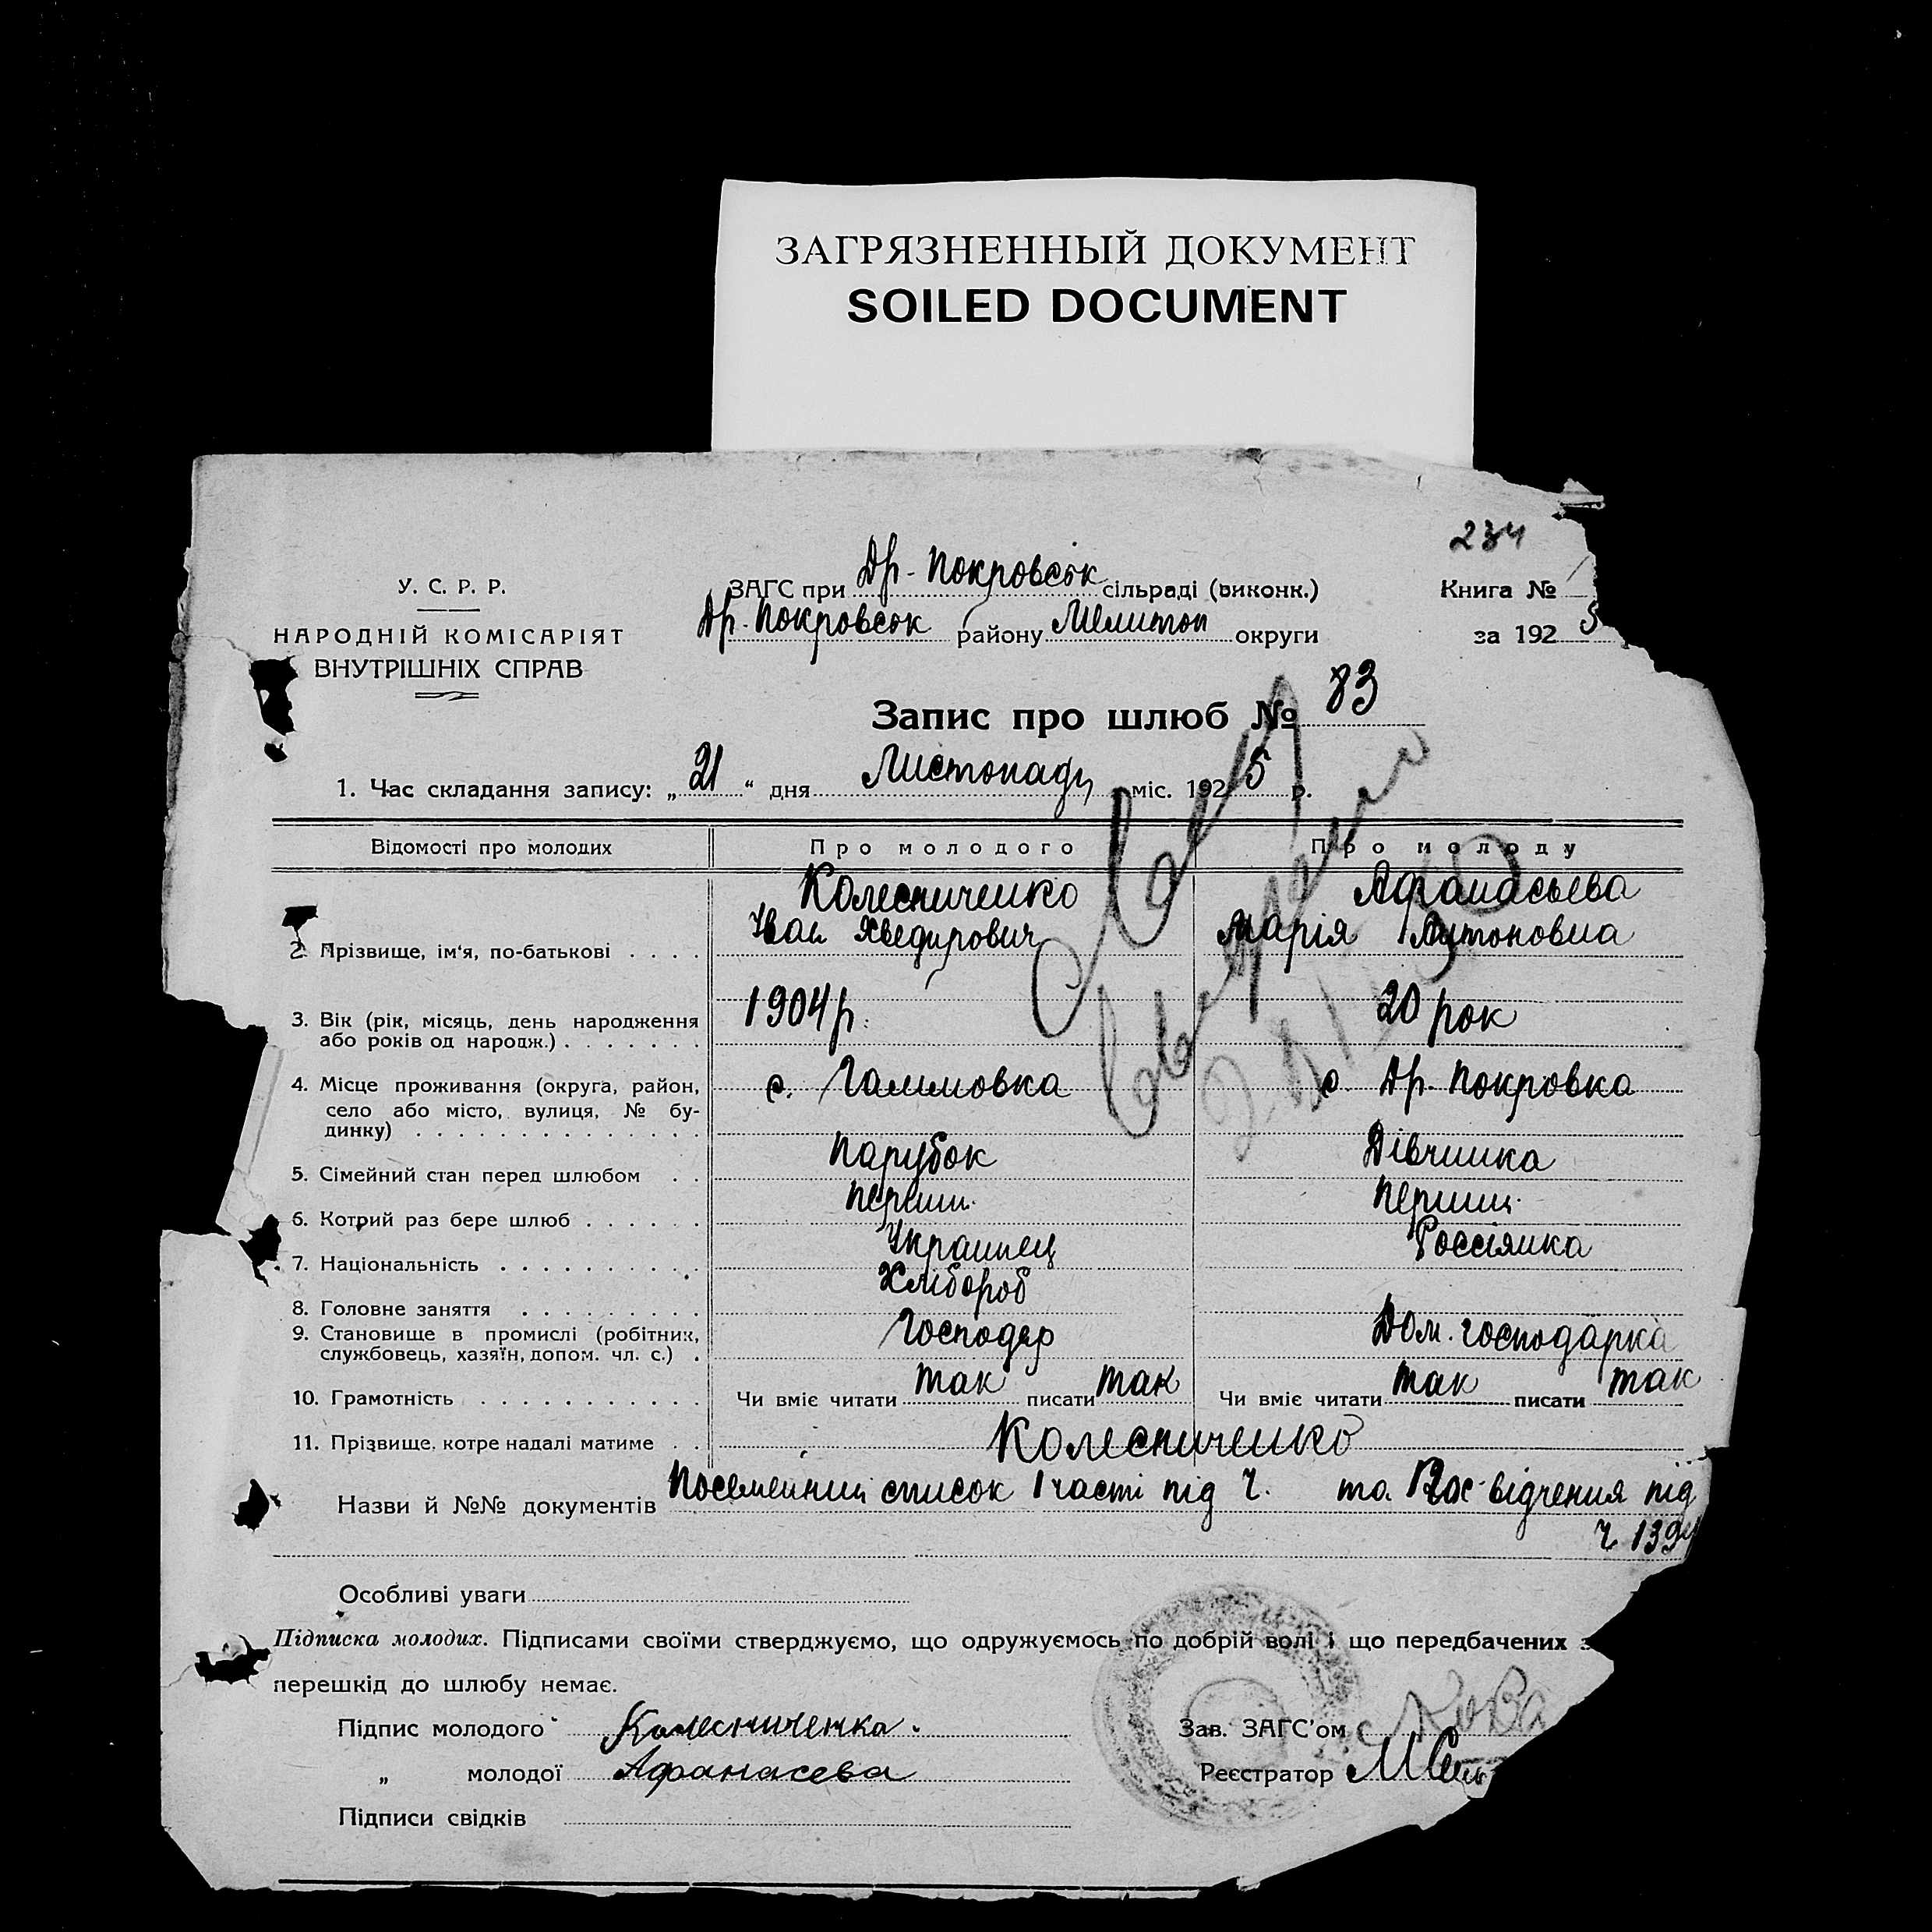 ЗАГРЯЗНЕННЫЙ ДОКУМЕНТ
SOILED DOCUMENT
234
У. С. Р. Р.
НАРОДНІЙ КОМІСАРІЯТ
ВНУТРІШНІХ СПРАВ
ЗАГС при Др-Покровськ сільраді (виконк.)
Др-Покровськ району Мелитоп округи
Книга №
за 192 5
Запис про шлюб № 83
1. Час складання запису: „ 21 “ дня Листопаду міс. 192 5 р.
Відомості про молодих Про молодого Про молоду
Колесниченко Афанасьева
2. Прізвище, ім‘я, по-батькові . . . . Іван Хведирович Марія Антоновна
3. Вік (рік, місяць, день народження 1904 р. 20 рок
або років од народж.) . . . . . . .
4. Місце проживання (округа, район, с. Гамовка с. Др. Покровка
село або місто, вулиця, № бу-
динку) . . . . . . . . . . . . . .
5. Сімейний стан перед шлюбом . . Парубок Дівчинка
6. Котрий раз бере шлюб . . . . . . Перший Перший
7. Національність . . . . . . . . . . Украинец Россіянка
8. Головне заняття . . . . . . . . . Хлібороб
9. Становище в промислі (робітник, Господар Дом. господарка
службовець, хазяїн, допом. чл. с.) .
10. Грамотність . . . . . . . . . . . Чи вміє читати так писати так Чи вміє читати так писати так
11. Прізвище, котре надалі матиме . . Колесниченко
Назви й №№ документів Посемейний список І части під Ч. та відчення під
ч 139
Особливі уваги
Підписка молодих. Підписами своїми стверджуємо, що одружуємось по добрій волі і що передбачених
перешкід до шлюбу немає.
Підпис молодого Колесниченка.
„ молодої Афанасева
Підписи свідків
Зав. ЗАГС’ом
Реєстратор